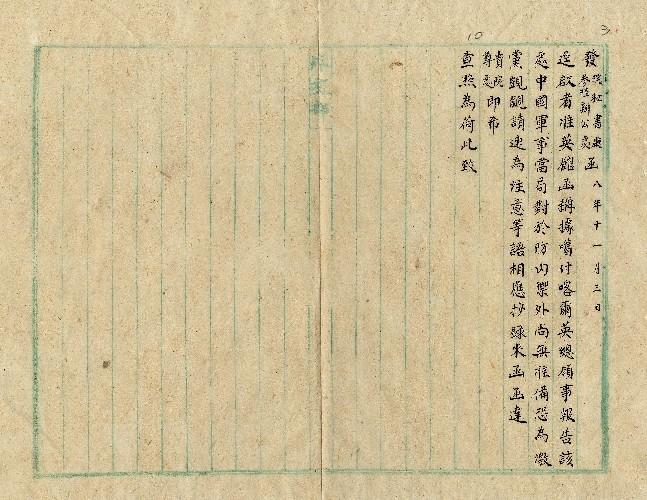 3
10
發院秘書廳
參陸辦公處函 八年十一月三日
逕啟者准英館函稱據噶什喀爾英總領事報告該
處中國軍事當局對於防內禦外尚無准備恐為激
黨覬覦請速為注意等語相應抄錄來函函達
貴院
尊處即希
查照為荷此致